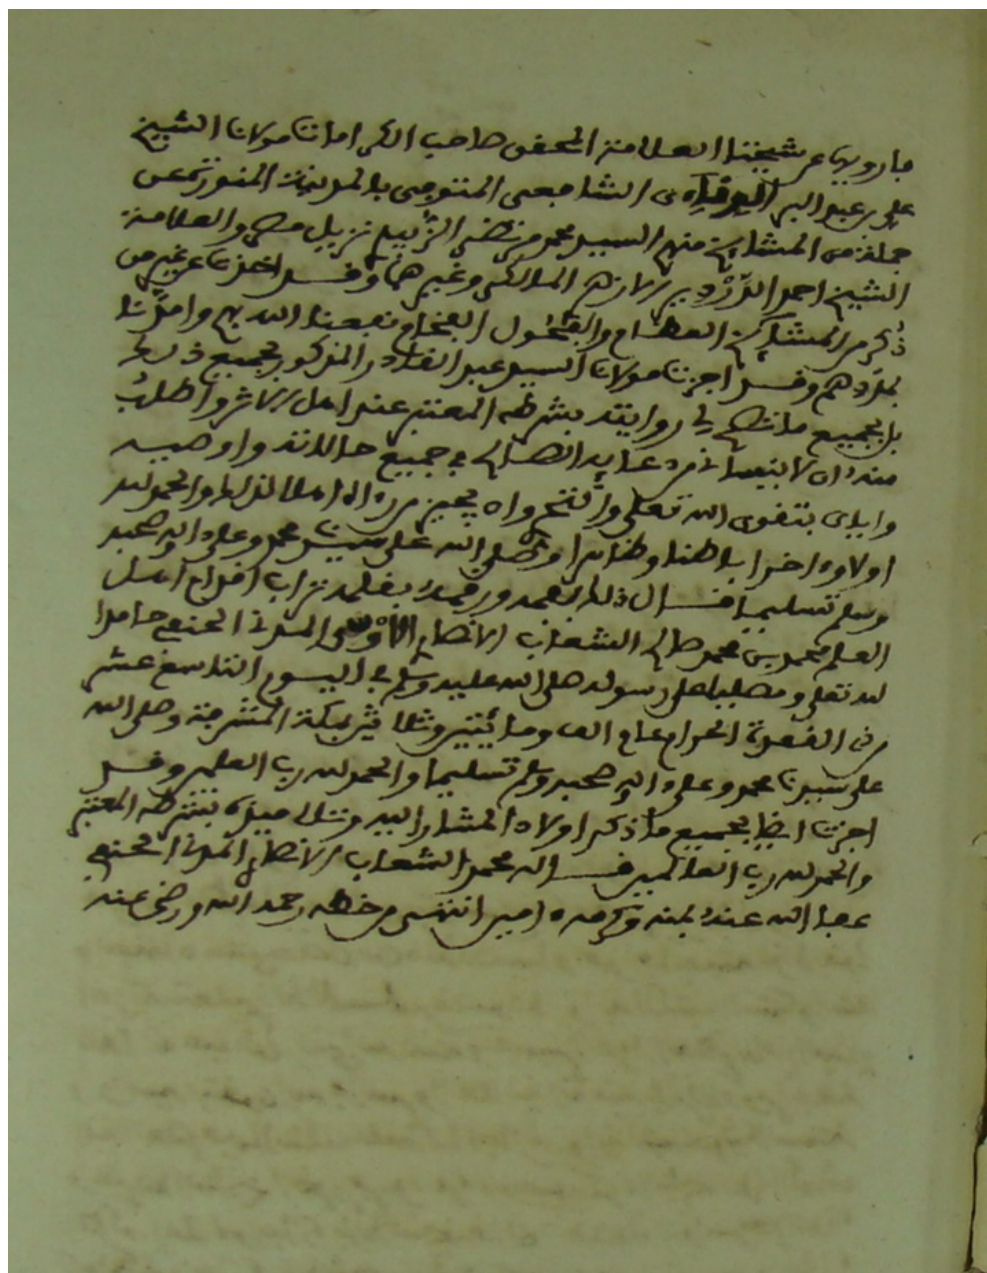 ما رويته عن شيخنا العلامة المحقق صاحب الكرامات مولانا الشيخ
علي بن عبد البر الونائي الشافعي المتوفى بالمدينة المنورة عن
جملة من المشايخ منهم السيد محمد مرتضى الزبيدي نزيل مصر والعلامة
الشيخ احمد الدردير الازهري المالكي وغيرهما وقد اخذنا عن غير من
ذكر من المشايخ العظام والفحول الفخام نفعنا الله بهم وامدنا
بمددهم وقد اجزت مولانا السيد عبد القادر المذكور بجميع ذلك
بل بجميع ما تصح لي روايته بشرطه المعتبر عند اهل الاثر واطلب
منه ان لا ينساني من دعايه الصالح في جميع حالاته واوصيه
واياي بتقوى الله تعلى وان يجيز من راه اهلا لذلك والحمد لله
اولا واخرا باطنا وظاهرا وصلى الله على سيدنا محمد وعلى اله وصحبه
وسلم تسليما قال ذلك بفمه ورقمه بقلمه تراب اقدام اهل
العلم محمد بن محمد صالح الشعاب الانصاري المدني الحنفي حامدا
لله تعلى ومصليا على رسوله صلى الله عليه وسلم في اليوم التاسع عشر
من القعدة الحرام عام الف ومائتين وثلاثين بمكة المشرفة وصلى الله
على سيدنا محمد وعلى اله وصحبه وسلم تسليما والحمد لله رب العلمين وقد
اجزت ايضا بجميع ما ذكر اولاد المشار اليه وتلاميذه بشرطه المعتبر
والحمد لله رب العالمين قاله محمد الشعاب الانصاري المدني الحنفي
عفا الله عنه بمنه وكرمه امين انتهى من خطه رحمه الله ورضي عنه